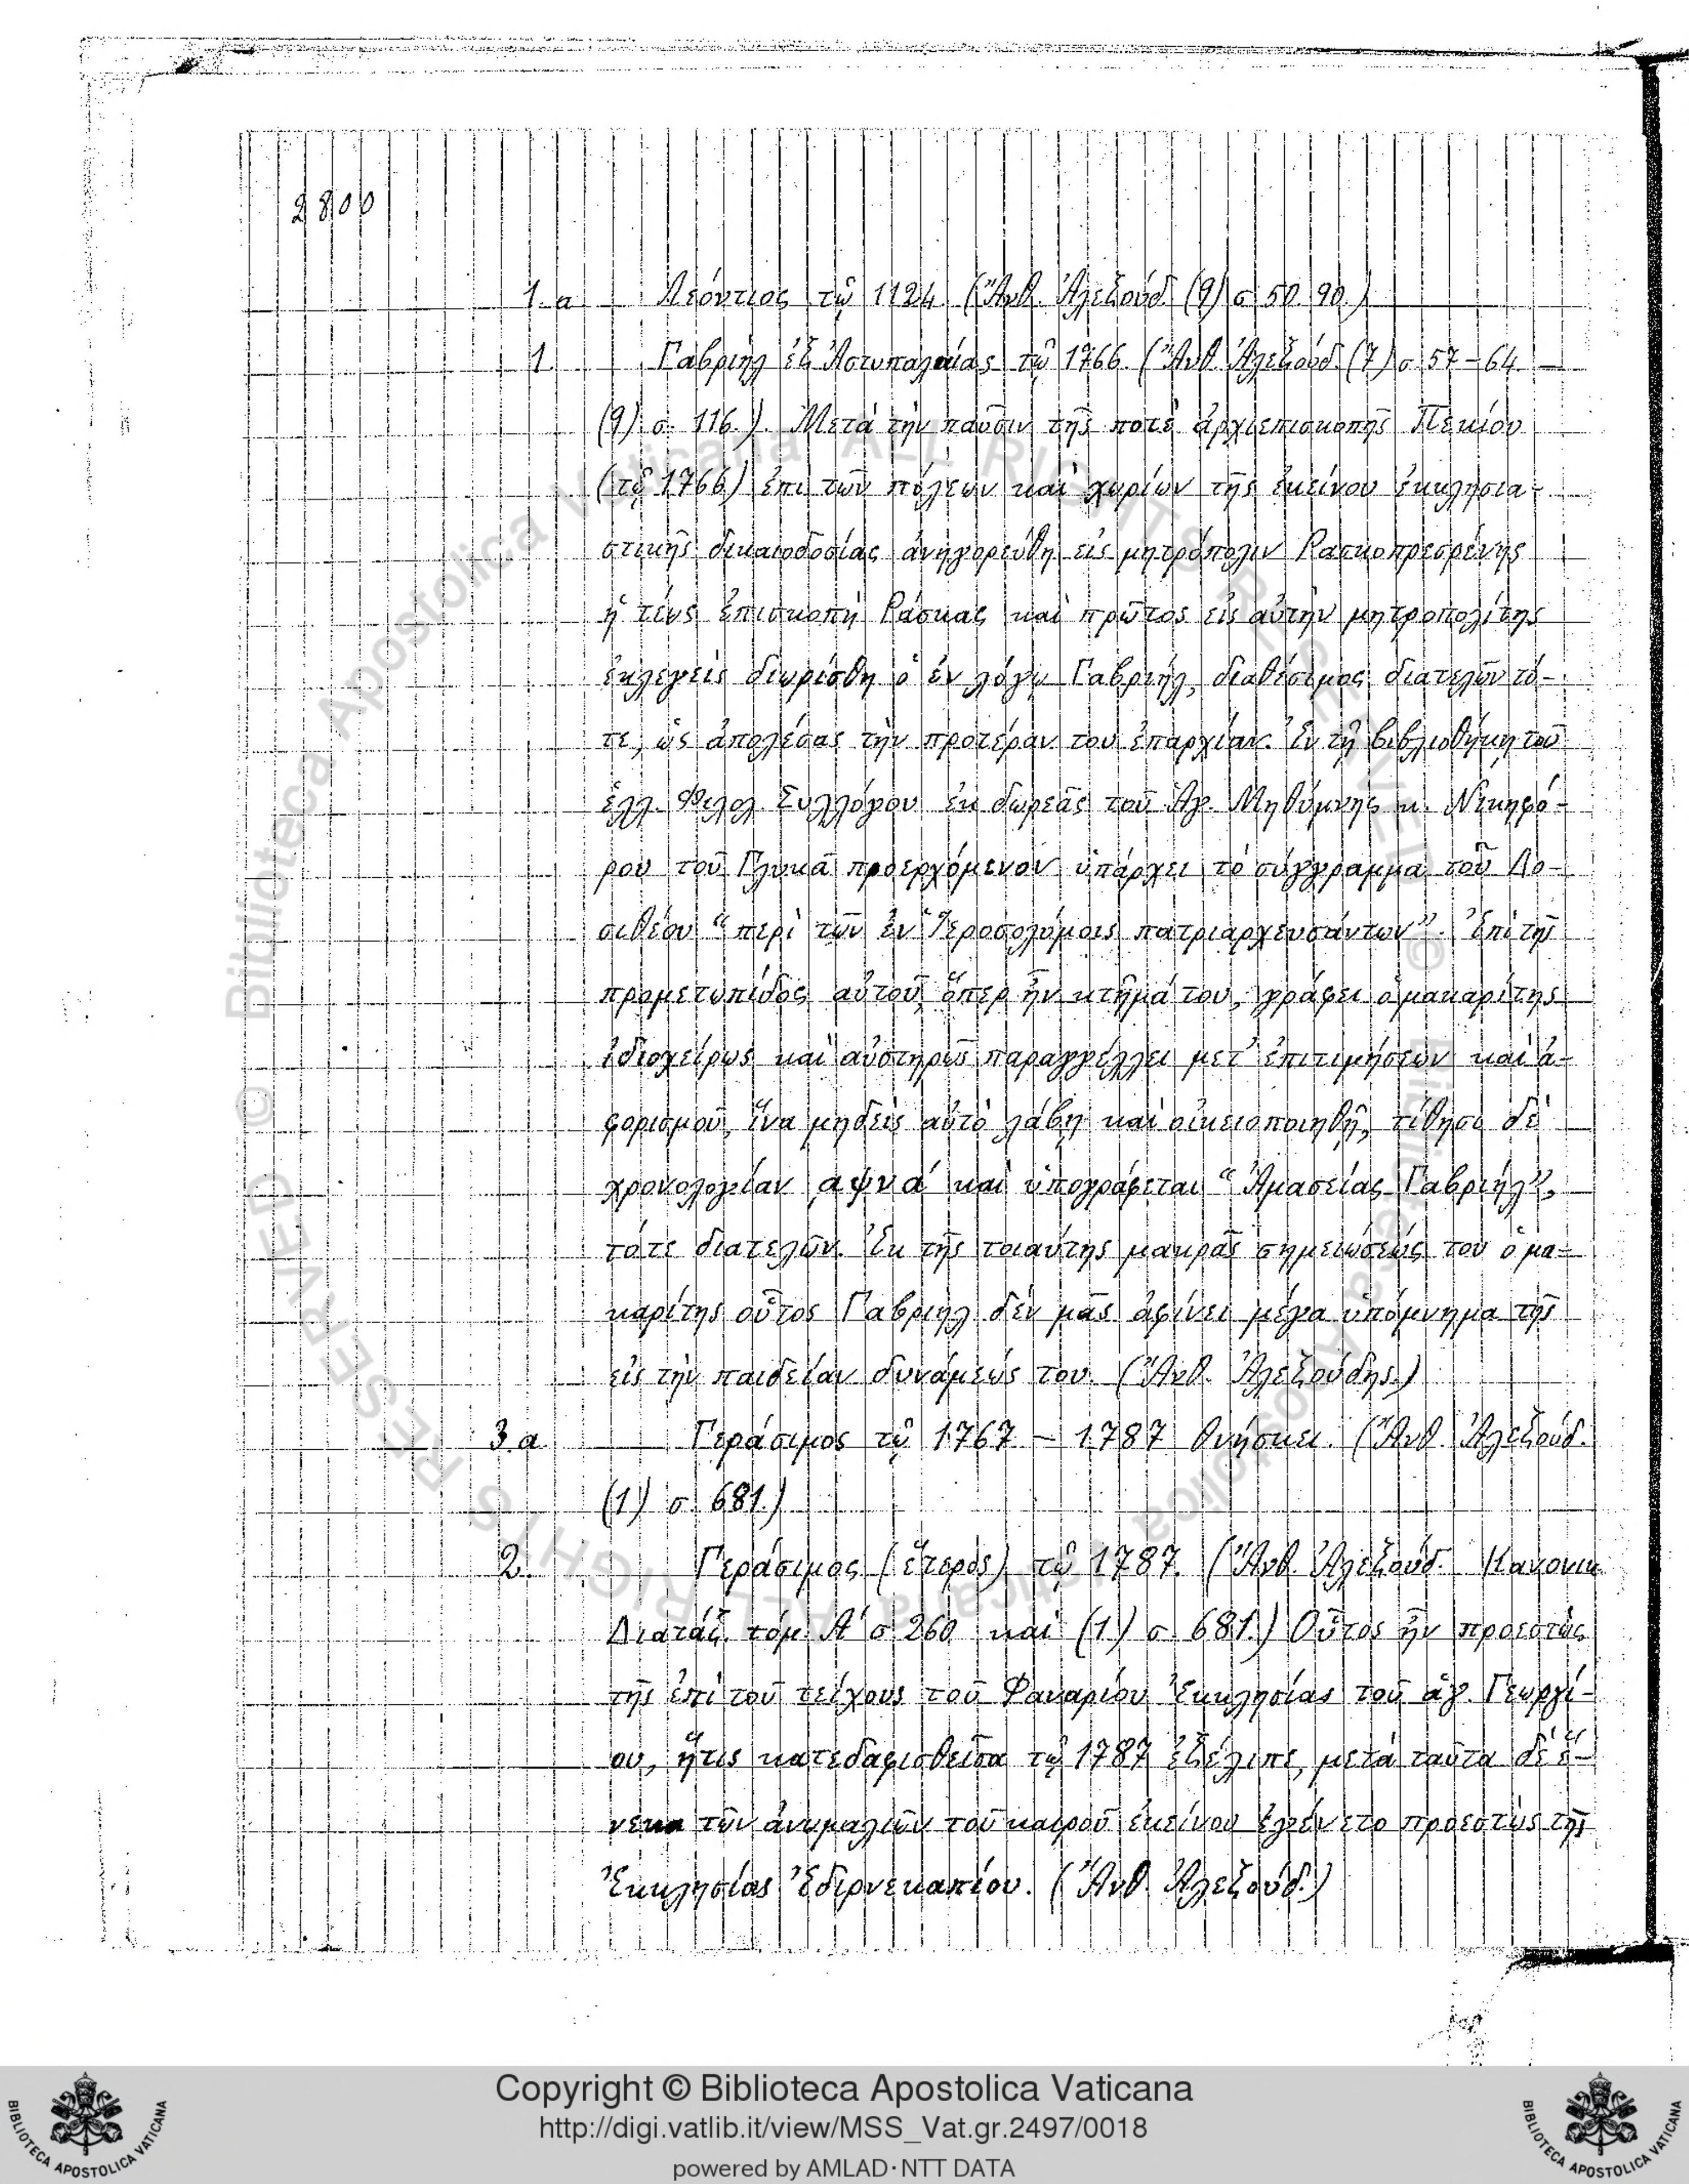 2800
1.α Λεόντιος τῷ 1124 (Ἄνθ. Ἀλεξούδ. (9) σ. 50. 90.)
1. Γαβριὴλ ἐξ Ἀστυπαλαίας τῷ 1766. (Ἄνθ. Ἀλεξούδ. (7) σ. 57-64 —
(9) σ. 116.). Μετὰ τὴν παῦσιν τῆς ποτὲ ἀρχιεπισκοπῆς Πεκίου
(τῷ 1766) ἐπὶ τῶν πόλεων καὶ χωρίων τῆς ἐκείνου ἐκκλησια-
στικῆς δικαιοδοσίας ἀνηγορεύθη εἰς μητρόπολιν Ρασκοπρεσρένης
ἡ τέως ἐπισκοπὴ Ράσκας καὶ πρῶτος εἰς αὐτὴν μητροπολίτης
ἐκλεγεὶς διωρίσθη ὁ ἐν λόγῳ Γαβριήλ, διαθέσιμος διατελῶν τό-
τε, ὡς ἀπολέσας τὴν προτέραν του ἐπαρχίαν. Ἐν τῇ βιβλιοθήκῃ τοῦ
ἑλλ. Φιλολ. Συλλόγου ἐκ δωρεᾶς τοῦ Ἁγ. Μηθύμνης κ. Νικηφό-
ρου τοῦ Γλυκᾶ προερχόμενον ὑπάρχει τὸ σύγγραμμα τοῦ Δο-
σιθέου “περὶ τῶν ἐν Ἱεροσολύμοις πατριαρχευσάντων”. Ἐπὶ τῆς
προμετωπίδος αὐτοῦ, ὅπερ ἦν κτῆμά του, γράφει ὁ μακαρίτης
ἰδιοχείρως καὶ αὐστηρῶς παραγγέλλει μετ’ ἐπιτιμήσεων καὶ ἀ-
φορισμοῦ, ἵνα μηδεὶς αὐτὸ λάβῃ καὶ οἰκειοποιηθῇ, τίθησι δὲ
χρονολογίαν αψνά καὶ ὑπογράφεται “Ἀμασείας Γαβριήλ”,
τότε διατελῶν. Ἐκ τῆς τοιαύτης μακρᾶς σημειώσεώς του ὁ μα-
καρίτης οὗτος Γαβριὴλ δὲν μᾶς ἀφίνει μέγα ὑπόμνημα τῆς
εἰς τὴν παιδείαν δυνάμεώς του. (Ἄνθ. Ἀλεξούδης.)
3.α Γεράσιμος τῷ 1767 – 1787 θνήσκει. (Ἄνθ. Ἀλεξούδ.
(1) σ. 681.)
2. Γεράσιμος (ἕτερος) τῷ 1787. (Ἄνθ. Ἀλεξούδ. Κανονικ.
Διατάξ. τόμ. Α΄ σ. 260 καὶ (1.) σ. 681.) Οὗτος ἦν προεστὼς
τῆς ἐπὶ τοῦ τείχους τοῦ Φαναρίου Ἐκκλησίας τοῦ ἁγ. Γεωργί-
ου, ἥτις κατεδαφισθεῖσα τῷ 1787 ἐξέλιπε, μετὰ ταῦτα δὲ ἕ-
νεκα τῶν ἀνωμαλιῶν τοῦ καιροῦ ἐκείνου ἐγένετο προεστὼς τῆς
Ἐκκλησίας Ἐδιρνεκαπίου. (Ἄνθ. Ἀλεξούδ.)
© Biblioteca Apostolica Vaticana ALL RIGHTS RESERVED
Copyright © Biblioteca Apostolica Vaticana
http://digi.vatlib.it/view/MSS_Vat.gr.2497/0018
powered by AMLAD·NTT DATA
BIBLIOTECA APOSTOLICA VATICANA
BIBLIOTECA APOSTOLICA VATICANA